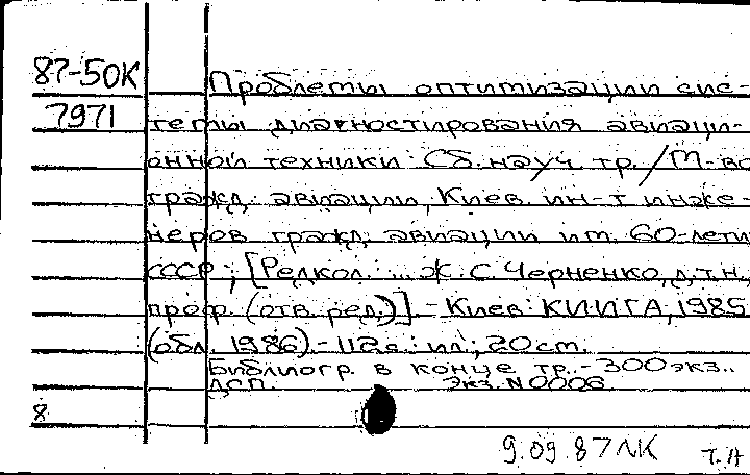 87-50К Проблемы оптимизации сис-
7971 темы диагностирования авиаци-
онной техники: Сб. науч. тр. / М-во
гражд. авиации, Киев. ин-т инже-
неров гражд. авиации им. 60-летия
СССР; [Редкол.: ... Ж. С. Черненко, д.т.н.,
проф. (отв. ред.)]. - Киев: КИИГА, 1985
(обл. 1986). - 112 с.: ил.; 20 cm.
Библиогр. в конце тр. - 300 экз..
ДСП. Экз. N 0006.
8
9.09.87 ЛК Т.Н